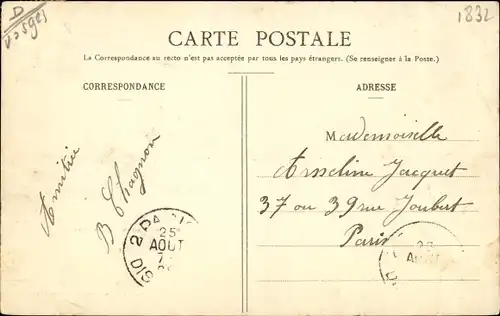 D
Vosges
1832
CARTE POSTALE
La Correspondance au recto n'est pas acceptée par tous les pays étrangers. (Se renseigner à la Poste.)
CORRESPONDANCE
Amitié
B Chagnon
2 PARIS
25
AOUT
DIS
ADRESSE
Mademoiselle
Anseline Jacquet
37 ou 39 rue Joubert
Paris